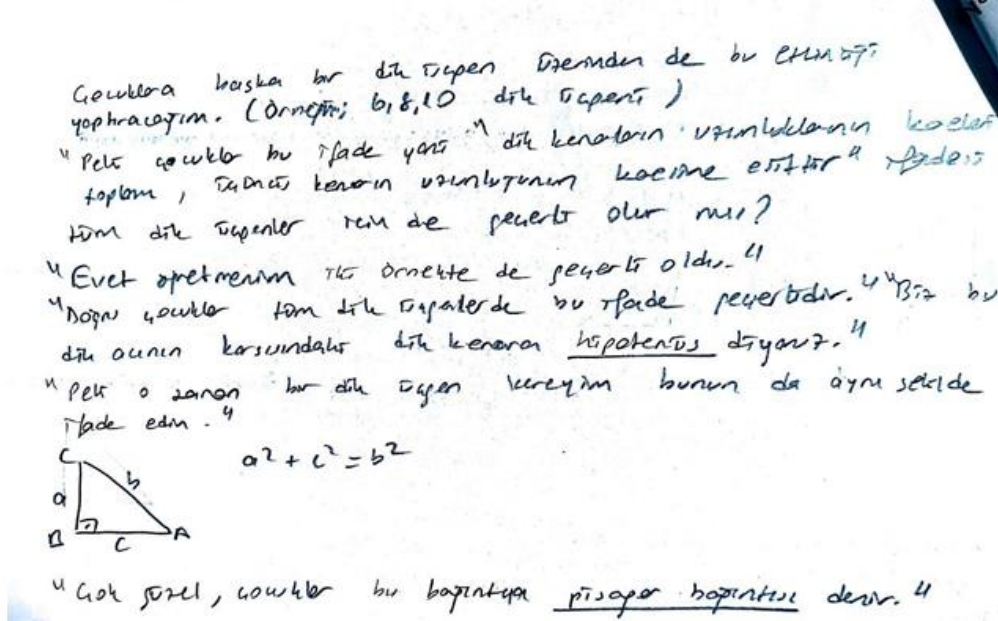 Çocuklara başka bir dik üçgen üzerinden de bu etkinliği
yaptıracağım. (Örneğin; 6,8,10 dik üçgeni)
"Peki çocuklar bu ifade yani "dik kenarların uzunluklarının kareleri
toplamı, üçüncü kenarın uzunluğunun karesine eşittir" ifadesi
tüm dik üçgenler için de geçerli olur mu?
"Evet öğretmenim iki örnekte de geçerli oldu."
"Doğru çocuklar tüm dik üçgenlerde bu ifade geçerlidir." "Biz bu
dik açının karşısındaki dik kenara hipotenüs diyoruz."
"Peki o zaman bir dik üçgen vereyim bunun da aynı şekilde
ifade edin."
C
a b a² + c² = b²
B c A
"Çok güzel, çocuklar bu bağıntıya pisagor bağıntısı denir."